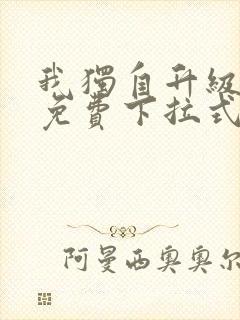 我獨自升級
免費下拉式
阿曼西奧奧尔